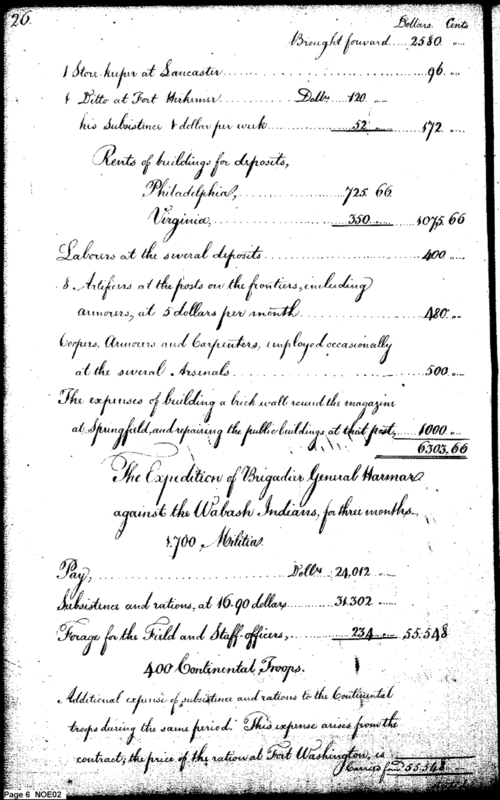 26.
Dollars. Cents
Brought forward.....2580 ....
1 Store keeper at Lancaster.........................96. ....
1 Ditto at Fort Herkemer........Dolls 120 ....
his Subsistence 1 dollar per week........52......172. ....
Rents of buildings for deposits,
Philadelphia,................725 66
Virginia,................350.......1075.66
Labourers at the several deposits...................400....
8 Artificers at the posts on the frontiers, including
armourers, at 5 dollars per month..................480....
Coopers, Armourers and Carpenters, employed occasionally
at the several Arsenals.........................500....
The expenses of building a brick wall round the magazine
at Springfield, and repairing the public buildings at that post,...1000....
6303.66
The Expedition of Brigadier General Harmar
against the Wabash Indians, for three months.
1.700 Militia
Pay,.......................Dolls 24,012......
Subsistence and rations, at 16.90 dollars......31.302......
Forage for the Field and Staff-officers,......234......55.548
400 Continental Troops.
Additional expense of subsistence and rations to the Continental
troops during the same period. This expense arises from the
contract; the price of the ration at Fort Washington, is
Carried ford 55.548
Page 6 NOE02